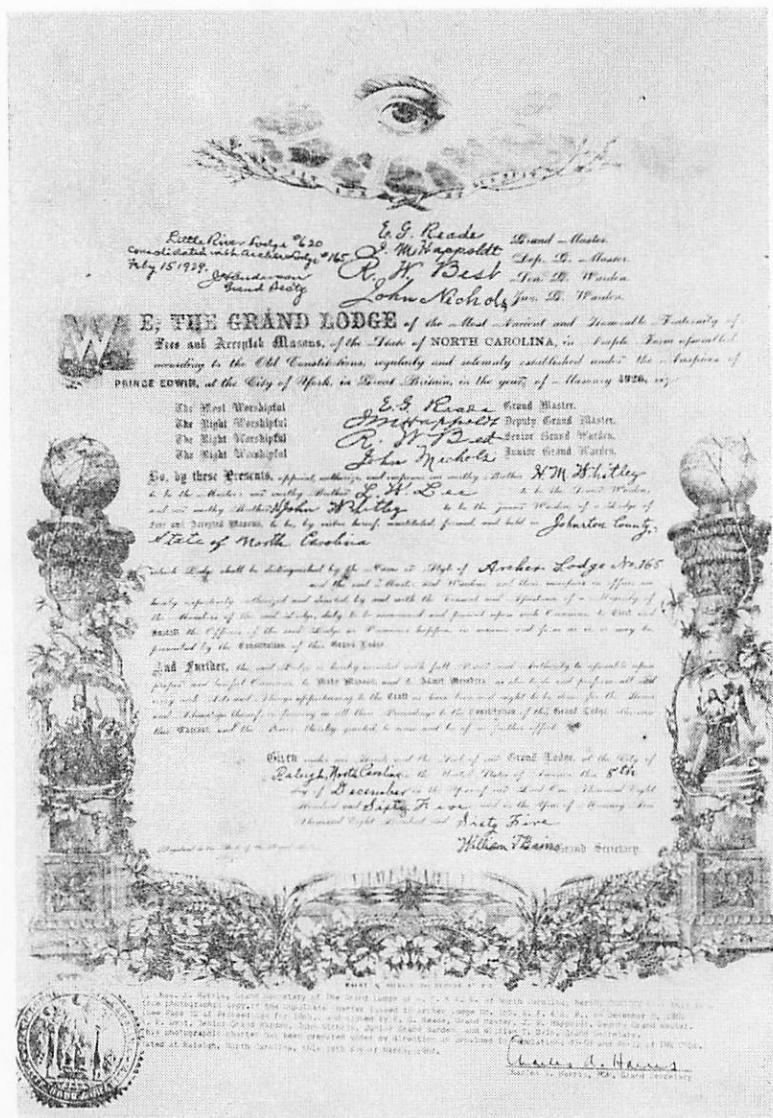 E. G. Reade Grand Master.
Little River Lodge #620
J. M. Happoldt Dep. G. Master.
Consolidated with Archer Lodge #165
R. W. Best Sen. G. Warden.
Feby 15 1929.
John Nichols Jun. G. Warden.
Grand Secty
WE, THE GRAND LODGE of the Most Ancient and Honorable Fraternity of
Free and Accepted Masons, of the State of NORTH CAROLINA, in Ample Form assembled
according to the Old Constitutions, regularly and solemnly established under the Auspices of
PRINCE EDWIN, at the City of York, in Great Britain, in the year of Masonry 4926, viz:
The Most Worshipful E. G. Reade Grand Master.
The Right Worshipful J M Happoldt Deputy Grand Master.
The Right Worshipful R. W Best Senior Grand Warden.
The Right Worshipful John Nichols Junior Grand Warden.
Do, by these Presents, appoint, authorize and empower our worthy Brother H. M. Whitley
to be the Master; our worthy Brother L. W. Lee to be the Senior Warden,
and our worthy Brother John Whitley to be the Junior Warden of a Lodge of
Free and Accepted Masons, to be, by virtue hereof, constituted, formed and held in Johnston County,
State of North Carolina
which Lodge shall be distinguished by the Name or Style of Archer Lodge No. 165
and the said Master and Wardens and their successors in office are
hereby respectively authorized and directed by and with the Consent and Assistance of a Majority of
the Members of the said Lodge, duly to be summoned and present upon such Occasions to Elect and
Install the Officers of the said Lodge as Vacancies happen in manner and form as is or may be
prescribed by the Constitution of this Grand Lodge
And Further, the said Lodge is hereby invested with full Power and Authority to assemble upon
proper and lawful Occasions to Make Masons, and to Admit Members, as also to do and perform all and
every such Acts and Things appertaining to the Craft as have been and ought to be done for the Honor
and Advantage thereof, conforming in all their Proceedings to the Constitution of this Grand Lodge, otherwise
this Warrant, and the Power thereby granted, to cease and be of no further effect.
Given under our Hands and the Seal of our Grand Lodge, at the City of
Raleigh, North Carolina in the United States of America this 8th
day of December in the Year of our Lord One Thousand Eight
Hundred and Sixty Five and in the Year of Masonry Five
Thousand Eight Hundred and Sixty Five
William T Bain Grand Secretary.
Grand Secretary of The Grand Lodge of North Carolina,
photographic copy of the duplicate Charter issued to Archer Lodge No. 165, A. F. & A. M., on December 8, 1865
Grand Master, J. M. Happoldt, Deputy Grand Master,
Best, Senior Grand Warden, John Nichols, Junior Grand Warden, and William T. Bain, Grand Secretary.
This photographic charter has been prepared under my direction
Dated at Raleigh, North Carolina, this 19th day of March,
Charles A. Harris
Charles A. Harris, Grand Secretary